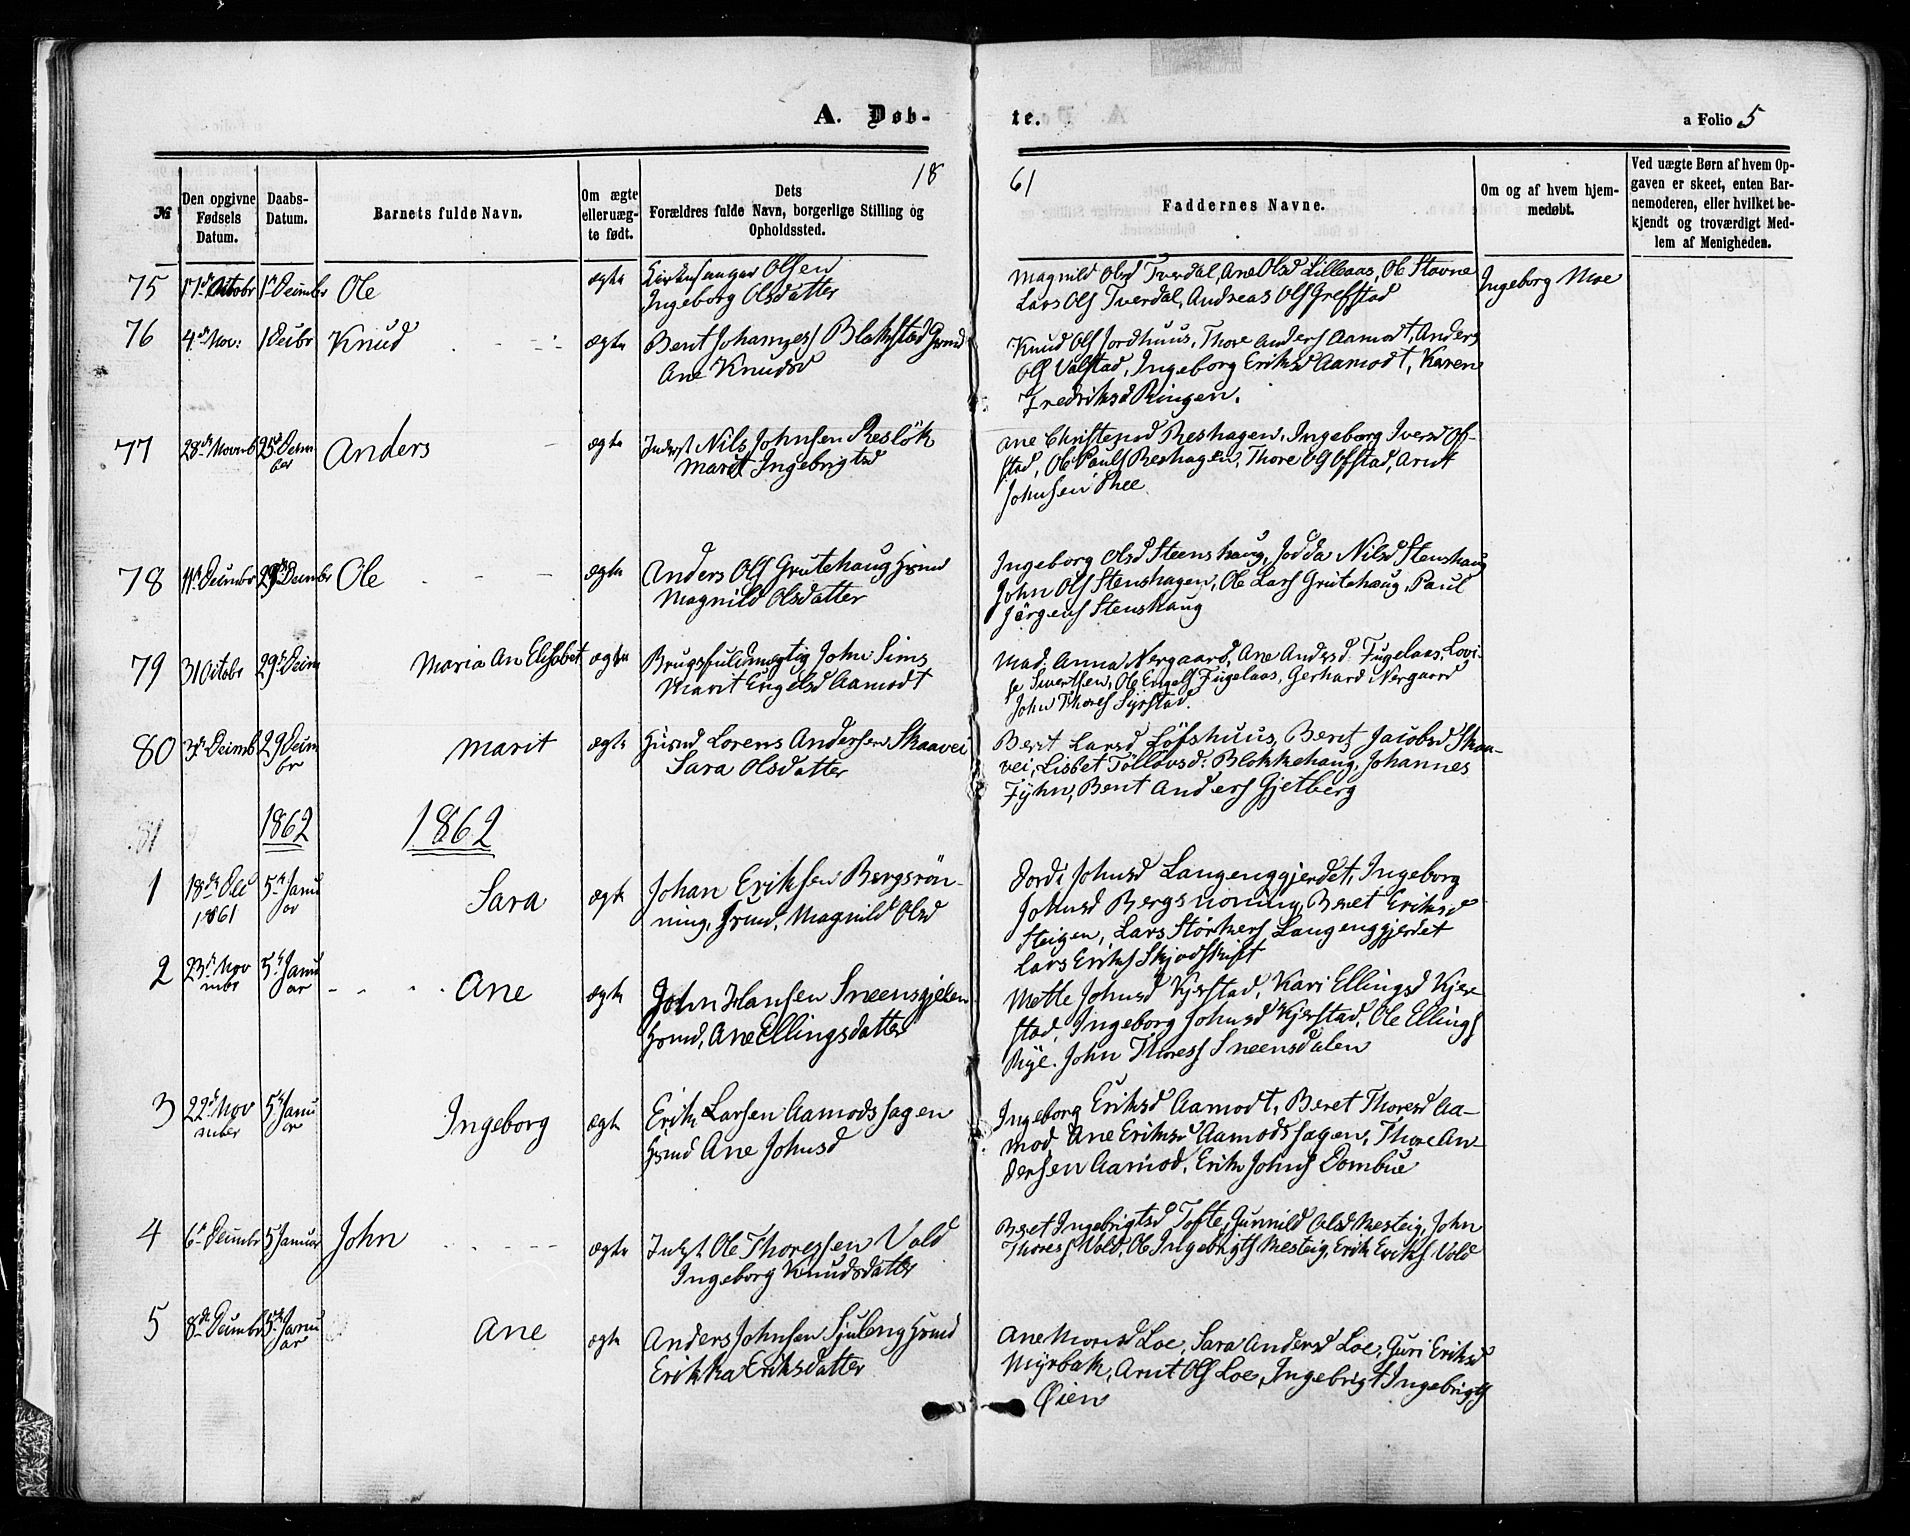 A. Døb-
te.
a Folio 5
18
61
№
Den opgivne Fødsels Datum.
Daabs-Datum.
Barnets fulde Navn.
Om ægte eller uægte født.
Dets Forældres fulde Navn, borgerlige Stilling og Opholdssted.
Faddernes Navne.
Om og af hvem hjemmedøbt.
Ved uægte Børn af hvem Opgaven er skeet, enten Barnemoderen, eller hvilket bekjendt og troværdigt Medlem af Menigheden.
75 Ole ægte
Kirkesanger Olsen
Ingeborg Olsdatter
Magnild Olsd Tverdal, Ane Olsd Lilleaas, Ole Stavne
Lars Ols Tverdal, Andreas Ols Grefstad
Ingeborg Moe
76 4de Nov: 1 Decbr Knud ægte
Berit Johanness Blakstad
Ane Knudsd
Knud Ols Jordhuus, Thore Anders Aamodt, Anders
Ols Valstad, Ingeborg Eriksd Aamodt, Karen
Fredriksd Ringen.
77 28de Novmb 25de Decmber Anders ægte
Inderst Nils Johnsen Resløk
Marit Ingebrigtsd
Ane Christensd Reshagen, Ingeborg Iversd Of-
stad, Ole Pauls Reshagen, Thore Ols Ofstad, Arnt
Johnsen Rhee
78 11te Decmbr 29de Decmbr Ole ægte
Anders Ols Grutehaug Hsmd
Magnild Olsdatter
Ingeborg Olsd Steenshaug, Jodda Nilsd Stenshaug
John Ols Stenshagen, Ole Lars Grutehaug, Paul
Jørgens Stenshaug
79 31 Octobr 29de Decm Maria An Elisabet ægte
Brugsfuldmægtig John Sims
Marit Engelsd Aamodt
Mad: Anna Nergaard, Ane Andersd: Fugelaas, Lovi-
se Sivertsen, Ole Engels Fugelaas, Gerhard Nergaard
John Thores Syrstad.
80 3de Decmb 29 Decmbr Marit ægte
Husmd Lorens Andersen Skaavei
Sara Olsdatter
Berit Larsd Løfshuus, Berit Jacobsd Skaa-
vei, Lisbet Tøllovsd: Blokkehaug, Johannes
Fyhn, Berit Anders Gjetberg
81
1862
1862
1 18de Dec 1861 5te Januar Sara ægte
Johan Eriksen Bergsrøn-
ning, Hsmd, Magnild Olsd
Dordi Johnsd Langenggjerdet, Ingeborg
Johnsd Bergsrønning, Beret Eriksd
Steigen, Lars Størkers Langenggjerdet
Lars Eriks Skjødskift
2 23de Novmbr 5te Januar Ane ægte
John Hansen
Hsmd, Ane Ellingsdatter
Mette Johnsd Kjerstad, Kari Ellingsd Kjer-
stad, Ingeborg Johnsd Kjerstad, Ole Ellings
Rye. John Thoress Sneensdalen
3 22de November 5te Januar Ingeborg ægte
Erik Larsen Aamodshagen
Hsmd Ane Johnsd
Ingeborg Eriksd Aamodt, Beret Thoresd Aa-
mod, Ane Eriksd Aamodshagen, Thore An-
dersen Aamod, Erik Johns Dombue
4 6te Decmbr 5 Januar John ægte
Inderst Ole Thoressen Vold
Ingeborg Knudsdatter
Beret Ingebrigtsd Tofte, Gunnild Olsd Mesteig, John
Thoress Vold, Ole Ingebrigts Mesteig, Erik Eriks Vold
5 8de Decmbr 5te Januar Ane ægte
Anders Johnsen Sjuleng Hsmd
Erikka Eriksdatter
Ane Monsd Loe, Sara Andersd Loe, Guri Eriksd
Myrbak, Arnt Ols Loe, Ingebrigt Ingebrigts
Øien